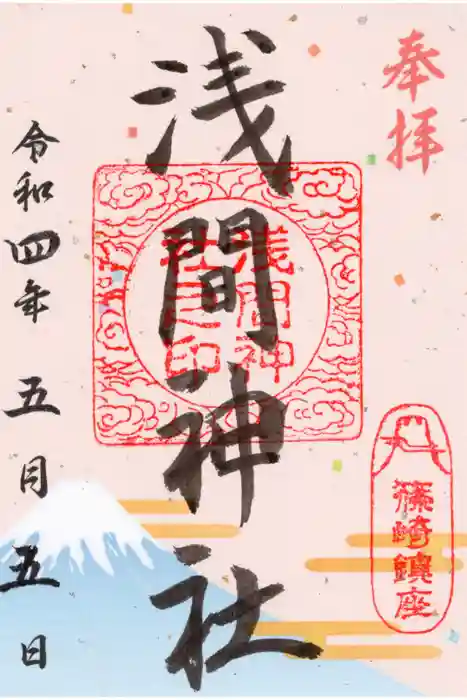 奉拝
浅間神社
浅間神
社之印
篠崎鎮座
令和四年五月五日